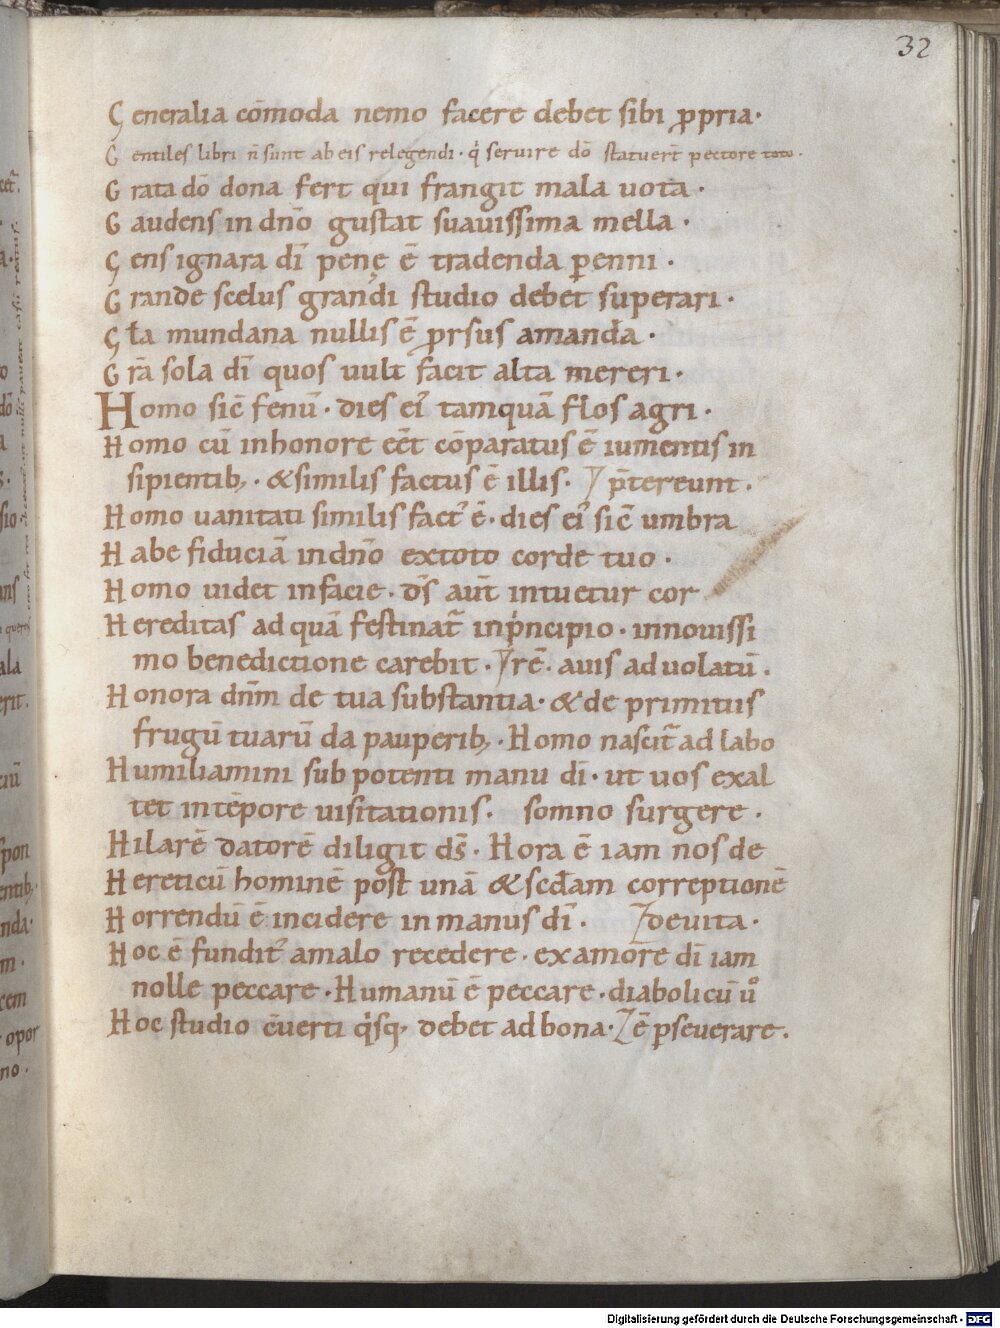 32
Generalia cōmoda nemo facere debet sibi ꝓpria·
Gentiles libri n̄ sunt ab eis relegendi· q̇ seruire dō statuer̄t pectore toto·
Grata dō dona fert qui frangit mala uota·
Gaudens in dn̄o gustat suauissima mella·
Gens ignara dī penę ē tradenda ꝑenni·
Grande scelus grandi studio debet superari·
Gła mundana nullis ē ꝓrsus amanda·
Grā sola dī quos uult facit alta mereri·
Homo sic̄ fenū· dies eiꝰ tamquā flos agri·
Homo cū inhonore eēt cōparatus ē iumentis in
sipientib;· & similis factus ē illis· p̄tereunt·
Homo uanitati similis factꝰ ē· dies eiꝰ sic̄ umbra
Habe fiduciā in dn̄o ex toto corde tuo·
Homo uidet in facie· ds̄ aut̄ intuetur cor
Hereditas ad quā festinat̄ in pͥncipio· in nouissi
mo benedictione carebit· rē· auis ad uolatū·
Honora dn̄m de tua substantia· & de primitiis
frugū tuarū da pauperib;· Homo nascit̄ ad labo
Humiliamini sub potenti manu dī· ut uos exal
tet in tēpore uisitationis· somno surgere·
Hilarē datorē diligit ds̄· Hora ē iam nos de
Hereticū hominē post unā & scdam correptionē
Horrendū ē incidere in manus dī· deuita·
Hoc ē fundit᷒ a malo recedere· ex amore dī iam
nolle peccare· Humanū ē peccare· diabolicū uͦ
Hoc studio c̄uerti q̇sq; debet ad bona· ē ꝑseuerare·
Digitalisierung gefördert durch die Deutsche Forschungsgemeinschaft - DFG